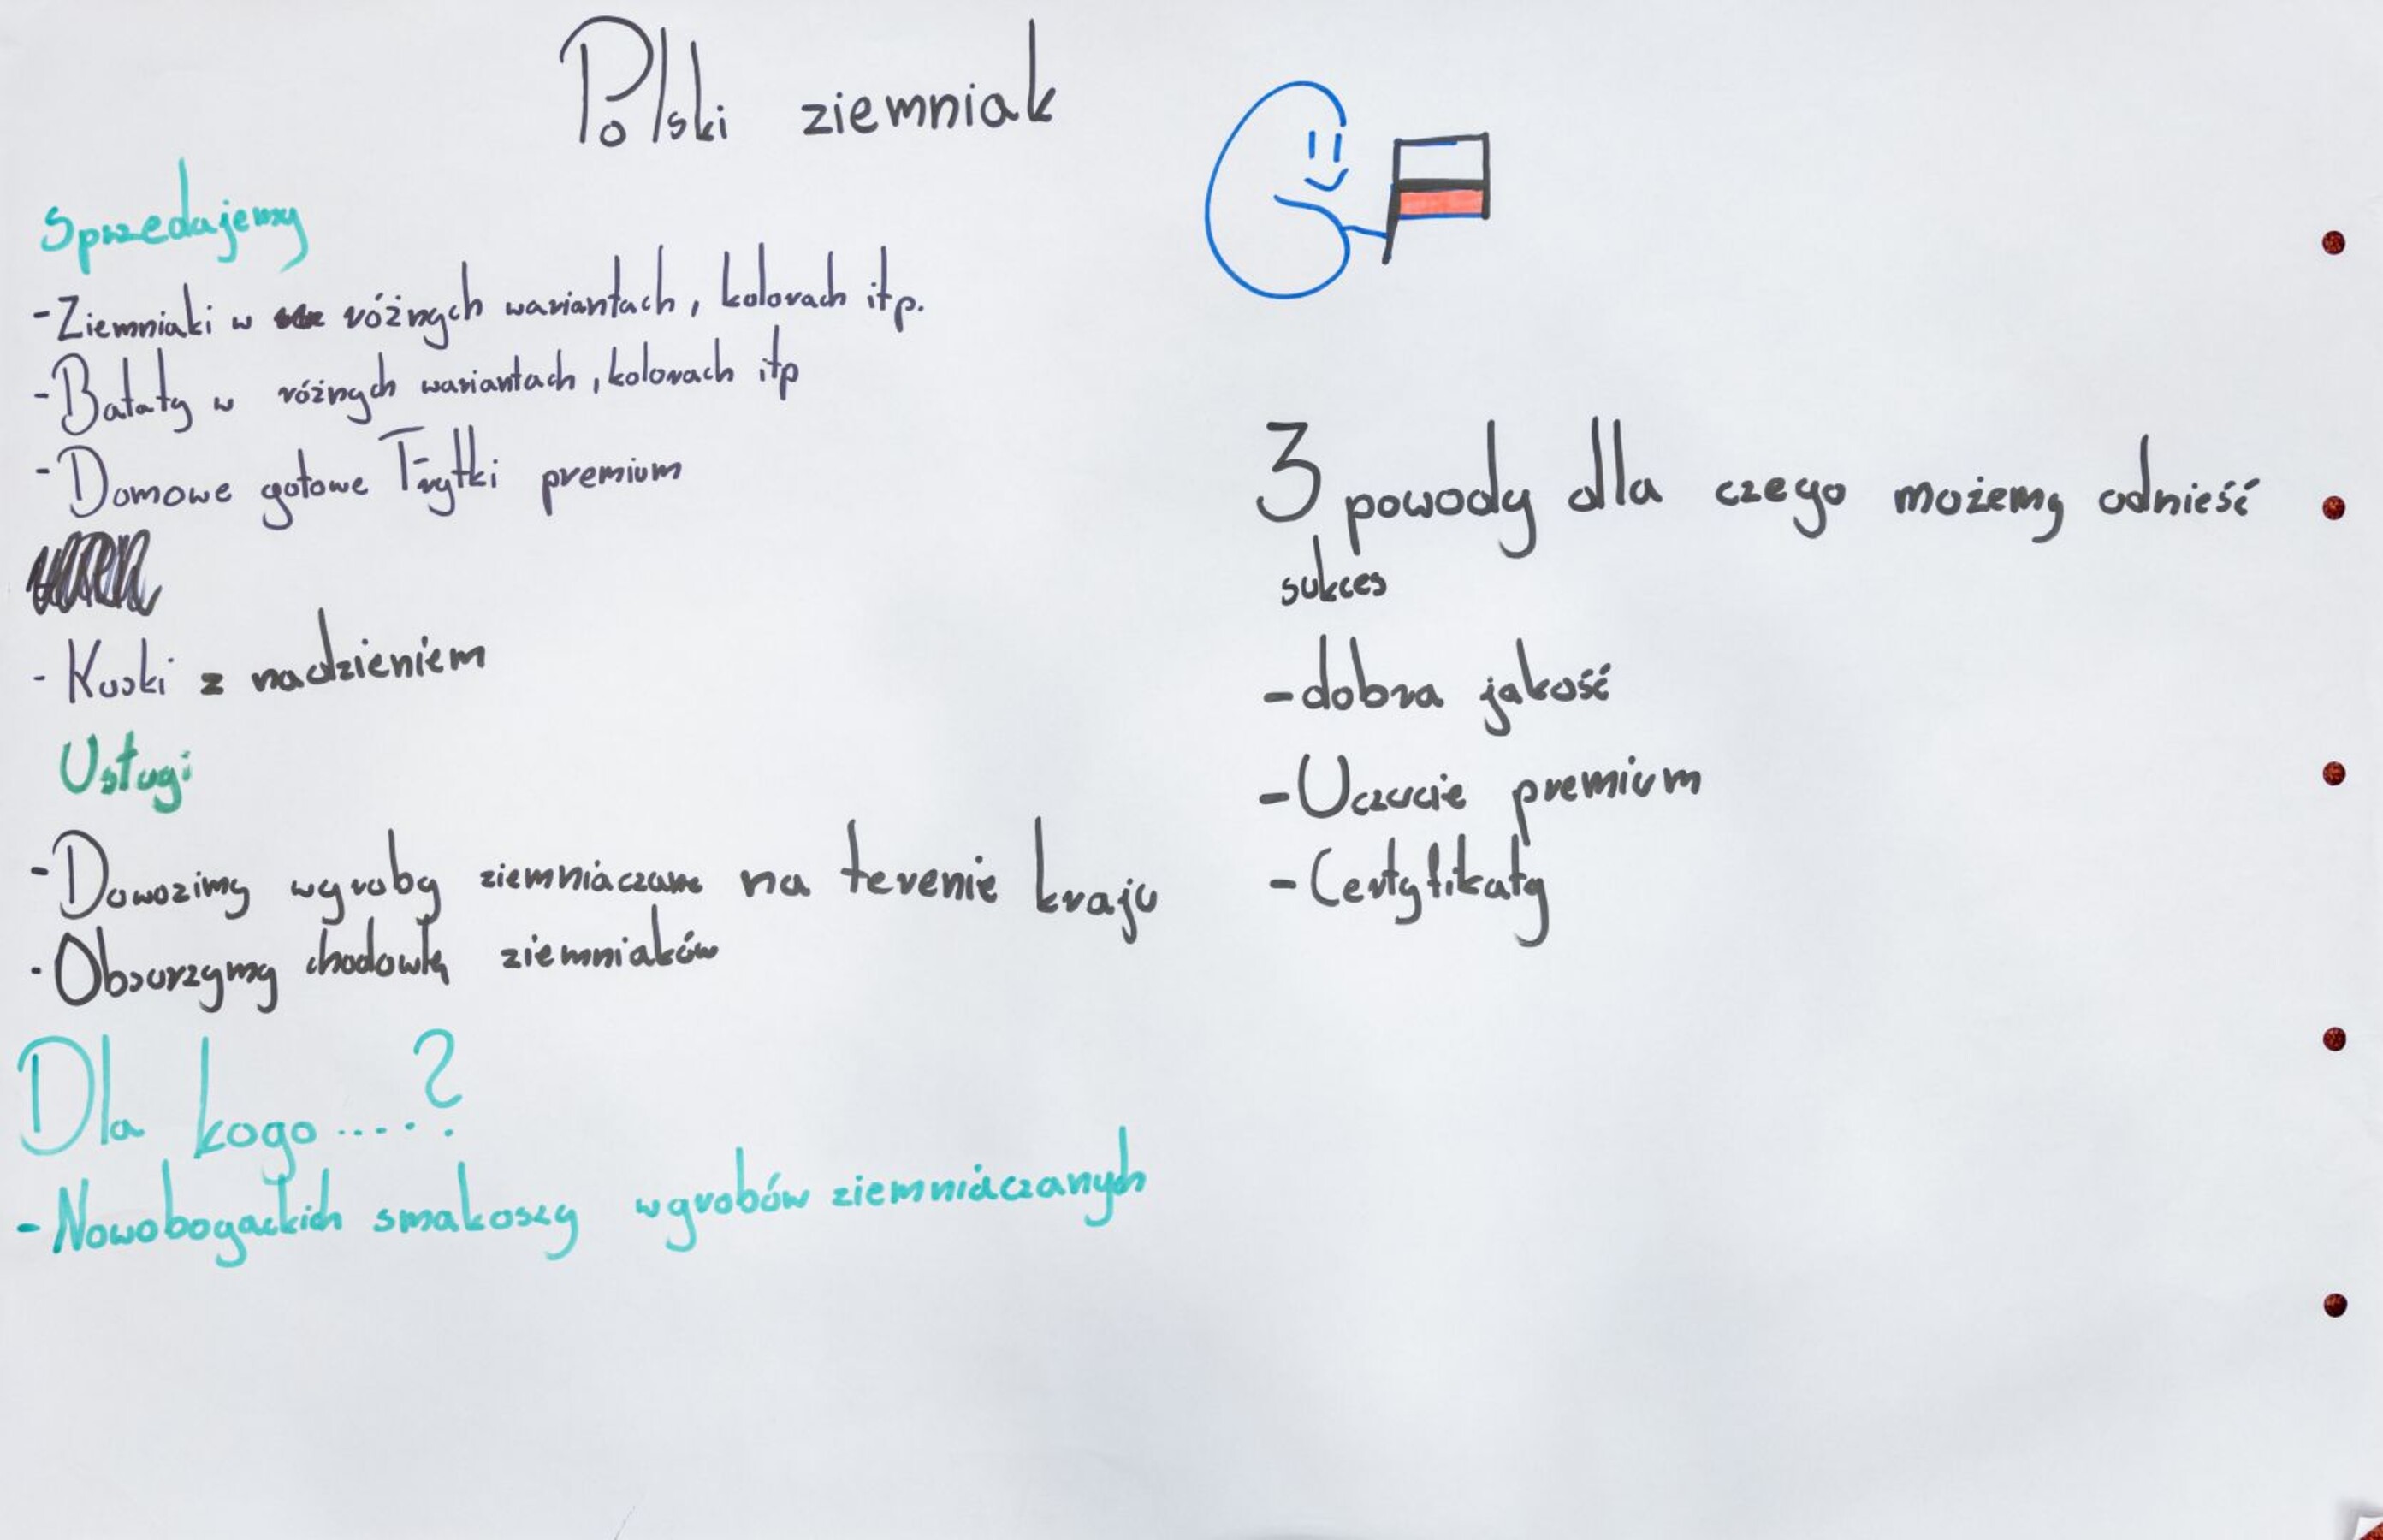 Polski ziemniak
Sprzedajemy
-Ziemniaki w różnych wariantach, kolorach itp.
-Bataty w różnych wariantach, kolorach itp
-Domowe gotowe Frytki premium
-Kuski z nadzieniem
Usługi
-Dowozimy wyroby ziemniaczane na terenie kraju
-Obsurzymy chodowlę ziemniaków
Dla kogo.....?
-Nowobogackich smakoszy wyrobów ziemniaczanych
3 powody dla czego możemy odnieść
sukces
-dobra jakość
-Uczucie premium
-Certyfikaty